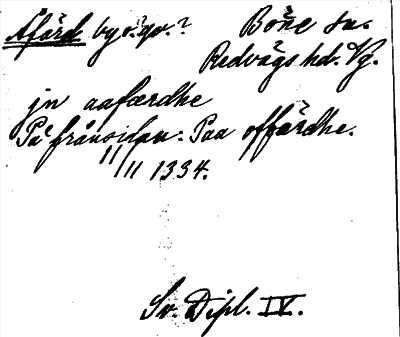 Åfärd by o. qv.? Böne sn.
Redvägs hd. Vg.
jn aafærdhe
På frånsidan. Paa offärdhe.
11/11 1334.
Sv. Dipl. IV.